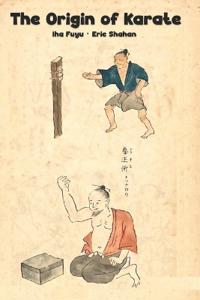 The Origin of Karate
Iha Fuyu · Eric Shahan